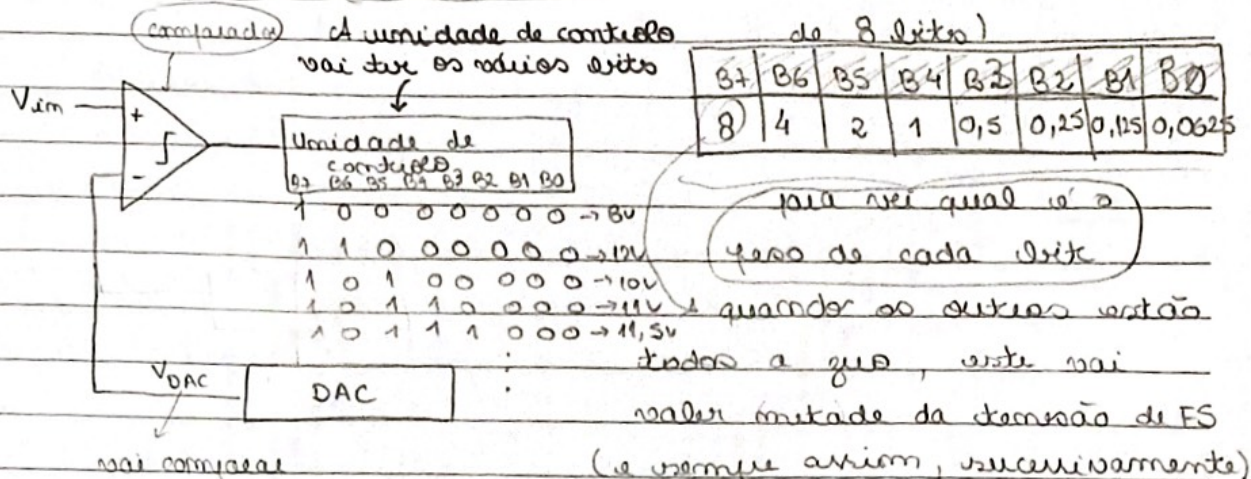 comparador A unidade de controlo
vai ter os vários bits
de 8 bits)
B7 B6 B5 B4 B3 B2 B1 B0
8 4 2 1 0,5 0,25 0,125 0,0625
Vin
+
-
Unidade de
controlo
B7 B6 B5 B4 B3 B2 B1 B0
1 0 0 0 0 0 0 0 → 8V
1 1 0 0 0 0 0 0 → 12V
1 0 1 0 0 0 0 0 → 10V
1 0 1 1 0 0 0 0 → 11V
1 0 1 1 1 0 0 0 → 11,5V
⋮
para ver qual é o
peso de cada bit
quando os outros estão
todos a zero, este vai
valer metade da tensão de FS
(e sempre assim, sucessivamente)
VDAC
DAC
vai comparar